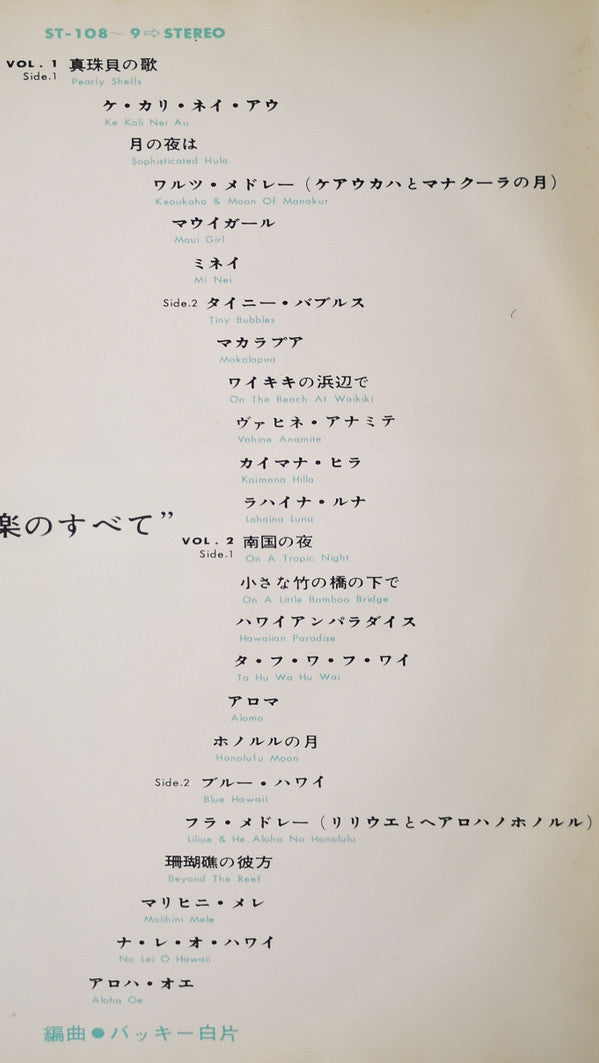 ST-108～9⇨STEREO
VOL. 1 真珠貝の歌
Side.1 Pearly Shells
ケ・カリ・ネイ・アウ
Ke Kali Nei Au
月の夜は
Sophisticated Hula
ワルツ・メドレー（ケアウカハとマナクーラの月）
Keaukaha & Moon Of Manakur
マウイガール
Maui Girl
ミネイ
Mi Nei
Side.2 タイニー・バブルス
Tiny Bubbles
マカラプア
Makalapua
ワイキキの浜辺で
On The Beach At Waikiki
ヴァヒネ・アナミテ
Vahine Anamite
カイマナ・ヒラ
Kaimana Hilla
ラハイナ・ルナ
Lahaina Luna
楽のすべて”
VOL. 2 南国の夜
Side.1 On A Tropic Night
小さな竹の橋の下で
On A Little Bamboo Bridge
ハワイアンパラダイス
Hawaiian Paradise
タ・フ・ワ・フ・ワイ
Ta Hu Wa Hu Wai
アロマ
Aloma
ホノルルの月
Honolulu Moon
Side.2 ブルー・ハワイ
Blue Hawaii
フラ・メドレー（リリウエとヘアロハノホノルル）
Liliue & He. Aloha No Honolulu
珊瑚礁の彼方
Beyond The Reef
マリヒニ・メレ
Malihini Mele
ナ・レ・オ・ハワイ
Na Lei O Hawaii
アロハ・オエ
Aloha Oe
編曲●バッキー白片